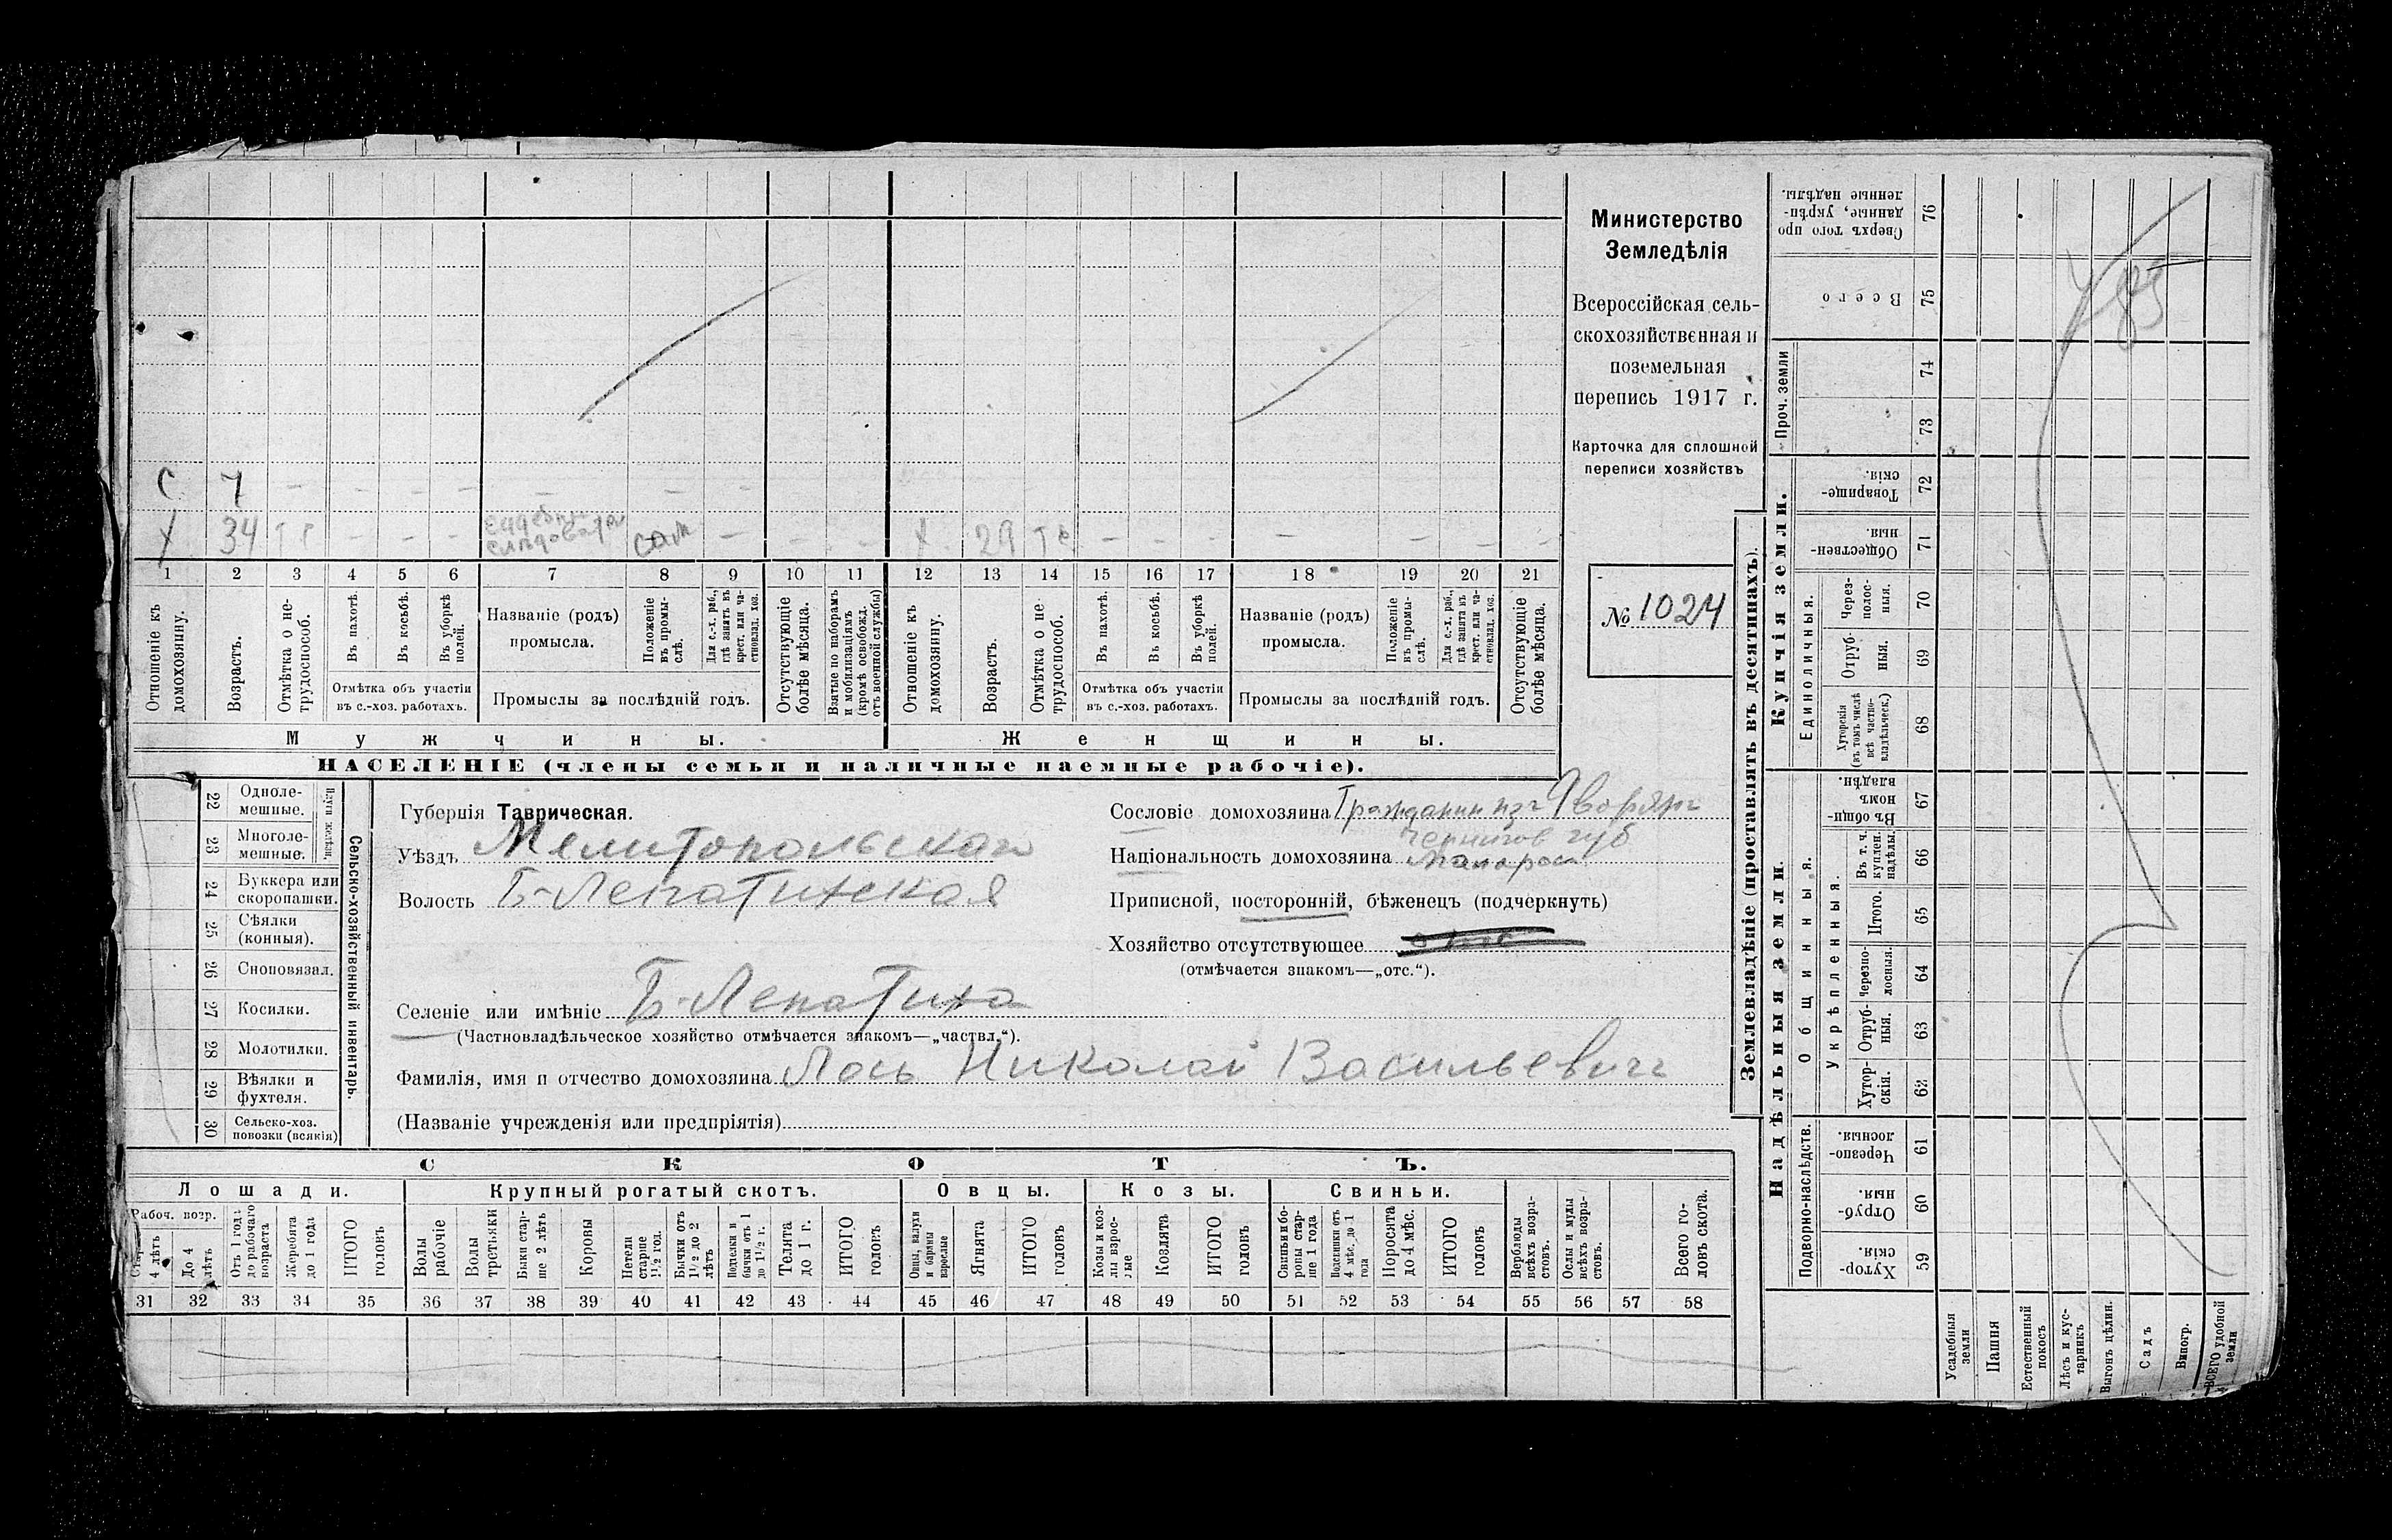 С 7 – – – – – – –
Х 34 тр – – – судебный
слѣдователь сам – – – Х 29 тр – – – – – – –
1 2 3 4 5 6 7 8 9 10 11 12 13 14 15 16 17 18 19 20 21
Отношеніе къ домохозяину.
Возрастъ.
Отмѣтка о не-трудоспособ.
Въ пахотѣ.
Въ косьбѣ.
Въ уборкѣ полей.
Отмѣтка объ участіи
въ с.-хоз. работахъ.
Названіе (родъ)
промысла.
Положеніе въ промы-слѣ.
Для с.-х. раб., гдѣ занятъ въ крест. или ча-стновлад. хоз.
Промыслы за послѣдній годъ.
Отсутствующіе болѣе мѣсяца.
Взятые по наборамъ и мобилизаціямъ (кромѣ освобожд. отъ военной службы)
Отношеніе къ домохозяину.
Возрастъ.
Отмѣтка о не трудоспособ.
Въ пахотѣ.
Въ косьбѣ.
Въ уборкѣ полей.
Отмѣтка объ участіи
въ с.-хоз. работахъ.
Названіе (родъ)
промысла.
Положеніе въ промы-слѣ.
Для с.-х. раб., гдѣ занята въ крест. или ча-стновлад. хоз.
Промыслы за послѣдній годъ.
Отсутствующіе болѣе мѣсяца.
Мужчины. Женщины.
НАСЕЛЕНІЕ (члены семьи и наличные наемные рабочіе).
Министерство
Земледѣлія
Всероссійская сель-
скохозяйственная и
поземельная
перепись 1917 г.
Карточка для сплошной
переписи хозяйствъ
№ 1024
22 Одноле-
мешные.
23 Многоле-
мешные.
24 Буккера или
скоропашки.
25 Сѣялки
(конныя).
26 Сноповязал.
27 Косилки.
28 Молотилки.
29 Вѣялки и
фухтеля.
30 Сельско-хоз.
повозки (всякія)
Сельско-хозяйственный инвентарь.
Губернія Таврическая.
Уѣздъ Мелитопольскаго
Волость Б-Лепатихская
Селеніе или имѣніе Б-Лепатиха
(Частновладѣльческое хозяйство отмѣчается знакомъ—„частвл.“).
Фамилія, имя и отчество домохозяина Лось Николай Васильевичъ
(Названіе учрежденія или предпріятія)
Сословіе домохозяина Гражданин изъ Дворянъ
Чернигов губ
Національность домохозяина малорос
Приписной, посторонній, бѣженецъ (подчеркнуть)
Хозяйство отсутствующее
(отмѣчается знакомъ—„отс.“).
СКОТЪ.
Лошади. Крупный рогатый скотъ. Овцы. Козы. Свиньи.
Рабоч. возр.
4 лѣтъ
До 4 лѣтъ
Отъ 1 года до рабочаго возраста
Жеребята до 1 года
ИТОГО головъ
Волы рабочіе
Волы третьяки
Быки стар-ше 2 лѣтъ
Коровы
Нетели старше 1½ год.
Бычки отъ 1½ до 2 лѣтъ
Подтелки и бычки отъ 1 до 1½ г.
Телята до 1 г.
ИТОГО головъ
Овцы, валухи и бараны взрослые
Ягнята
ИТОГО головъ
Козы и коз-лы взрос-лые
Козлята
ИТОГО головъ
Свиньи и бо-ровы стар-ше 1 года
Подсвинки отъ 4 мѣс. до 1 года
Поросята до 4 мѣс.
ИТОГО головъ
Верблюды всѣхъ возра-стовъ.
Ослы и мулы всѣхъ возра-стовъ.
Всего го-ловъ скота.
31 32 33 34 35 36 37 38 39 40 41 42 43 44 45 46 47 48 49 50 51 52 53 54 55 56 57 58
Землевладѣніе (проставлять въ десятинахъ).
Купчія земли.
Надѣльныя земли.
Проч. земли
Единоличныя.
Общинныя.
Укрѣпленныя.
Подворно-наслѣдств.
Сверхъ того про данные, укрѣп-ленные надѣлы. 76
Всего 75
74
73
Товарище-скія. 72
Обществен-ныя. 71
Через-полос-ныя. 70
Отруб-ныя. 69
Хуторскія (въ томъ числѣ всѣ частно-владѣльческ.) 68
Въ общи-номъ владѣн. 67
Въ т. ч. куплен. надѣлы. 66
Итого. 65
Черезпо-лосныя. 64
Отруб-ныя. 63
Хутор-скія. 62
Черезпо-лосныя. 61
Отруб-ныя. 60
Хутор-скія. 59
Усадебныя земли
Пашня
Естественный покосъ
Лѣсъ и кус-тарникъ
Выгонъ цѣлин.
Садъ
Виногр.
ВСЕГО удобной земли